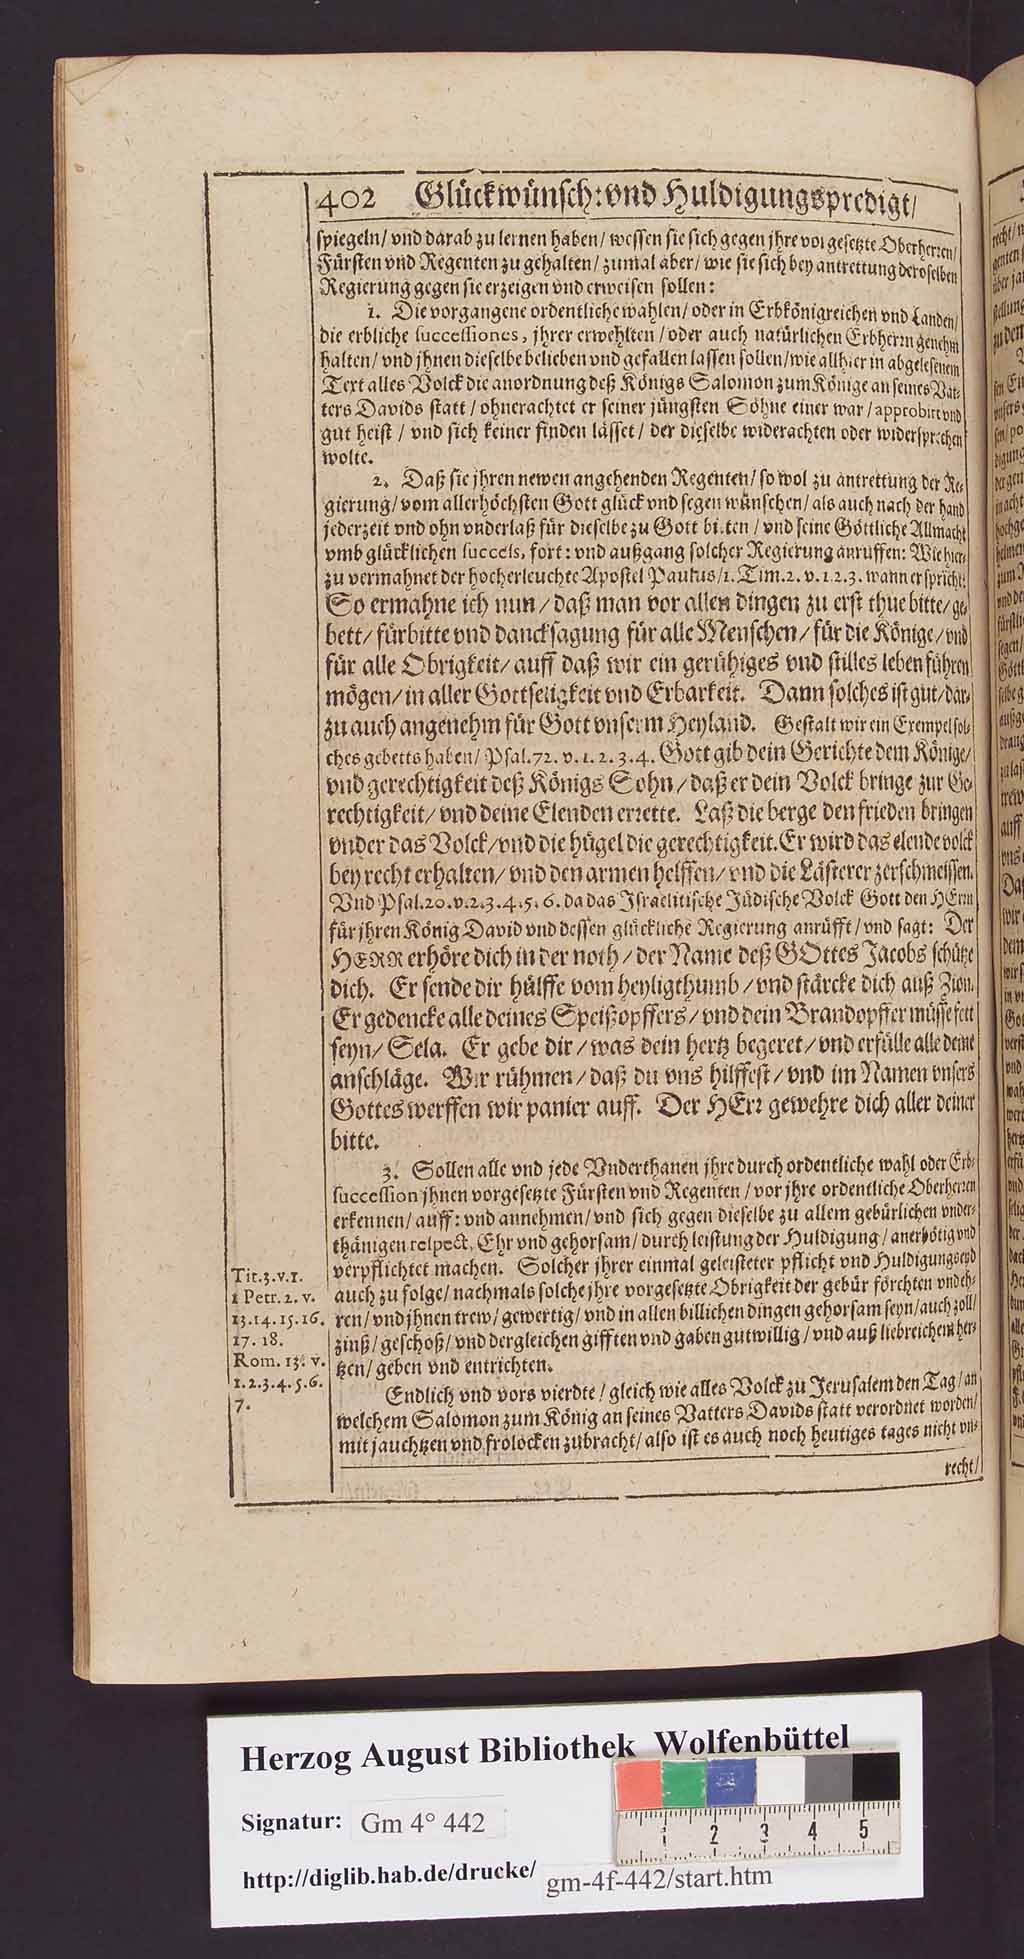 402 Glückwünsch: vnd Huldigungspredigt/
spiegeln/ vnd darab zu lernen haben/ wessen sie sich gegen jhre vorgesetzte Oberherren/
Fürsten vnd Regenten zu gehalten/ zumal aber/ wie sie sich bey antrettung deroselben
Regierung gegen sie erzeigen vnd erweisen sollen:
1. Die vorgangene ordentliche wahlen/ oder in Erbkönigreichen vnd Landen/
die erbliche successiones, jhrer erwehlten/ oder auch natürlichen Erbherrn genehm
halten/ vnd jhnen dieselbe belieben vnd gefallen lassen sollen/ wie allhier in abgelesenem
Text alles Volck die anordnung deß Königs Salomon zum Könige an seines Vat-
ters Davids statt/ ohnerachtet er seiner jüngsten Söhne einer war/ approbirt vnd
gut heist/ vnd sich keiner finden lässet/ der dieselbe widerachten oder widersprechen
wolte.
2. Daß sie jhren newen angehenden Regenten/ so wol zu antrettung der Re-
gierung/ vom allerhöchsten Gott glück vnd segen wünschen/ als auch nach der hand
jederzeit vnd ohn vnderlaß für dieselbe zu Gott bitten/ vnd seine Göttliche Allmacht
vmb glücklichen success, fort: vnd außgang solcher Regierung anruffen: Wie hier-
zu vermahnet der hocherleuchte Apostel Paulus/ 1. Tim. 2. v. 1. 2. 3. wann er spricht:
So ermahne ich nun/ daß man vor allen dingen zu erst thue bitte/ ge-
bett/ fürbitte vnd dancksagung für alle Menschen/ für die Könige/ vnd
für alle Obrigkeit/ auff daß wir ein gerühiges vnd stilles leben führen
mögen/ in aller Gottseligkeit vnd Erbarkeit. Dann solches ist gut/ dar-
zu auch angenehm für Gott vnserm Heyland. Gestalt wir ein Exempel sol-
ches gebetts haben/ Psal. 72. v. 1. 2. 3. 4. Gott gib dein Gerichte dem Könige/
vnd gerechtigkeit deß Königs Sohn/ daß er dein Volck bringe zur Ge-
rechtigkeit/ vnd deine Elenden errette. Laß die berge den frieden bringen
vnder das Volck/ vnd die hügel die gerechtigkeit. Er wird das elende volck
bey recht erhalten/ vnd den armen helffen/ vnd die Lästerer zerschmeissen.
Vnd Psal. 20. v. 2. 3. 4. 5. 6. da das Israelitische Jüdische Volck Gott den HErrn
für jhren König David vnd dessen glückliche Regierung anrüfft/ vnd sagt: Der
HERR erhöre dich in der noth/ der Name deß GOttes Jacobs schütze
dich. Er sende dir hülffe vom heyligthumb/ vnd stärcke dich auß Zion.
Er gedencke alle deines Speißopffers/ vnd dein Brandopffer müsse fett
seyn/ Sela. Er gebe dir/ was dein hertz begeret/ vnd erfülle alle deine
anschläge. Wir rühmen/ daß du vns hilffest/ vnd im Namen vnsers
Gottes werffen wir panier auff. Der HErr gewehre dich aller deiner
bitte.
3. Sollen alle vnd jede Vnderthanen jhre durch ordentliche wahl oder Erb-
succession jhnen vorgesetzte Fürsten vnd Regenten/ vor jhre ordentliche Oberherren
erkennen/ auff: vnd annehmen/ vnd sich gegen dieselbe zu allem gebürlichen vnder-
thänigen respect, Ehr vnd gehorsam/ durch leistung der Huldigung/ anerbötig vnd
verpflichtet machen. Solcher jhrer einmal geleisteter pflicht vnd Huldigungseyd
auch zu folge/ nachmals solche jhre vorgesetzte Obrigkeit der gebür förchten vnd eh-
ren/ vnd jhnen trew/ gewertig/ vnd in allen billichen dingen gehorsam seyn/ auch zoll/
zinß/ geschoß/ vnd dergleichen gifften vnd gaben gutwillig/ vnd auß liebreichem her-
tzen/ geben vnd entrichten.
Tit. 3. v. 1.
1 Petr. 2. v.
13. 14. 15. 16.
17. 18.
Rom. 13. v.
1. 2. 3. 4. 5. 6.
7.
Endlich vnd vors vierdte/ gleich wie alles Volck zu Jerusalem den Tag/ an
welchem Salomon zum König an seines Vatters Davids statt verordnet worden/
mit jauchtzen vnd frolocken zubracht/ also ist es auch noch heutiges tages nicht vn-
recht/
Herzog August Bibliothek Wolfenbüttel
Signatur: Gm 4° 442
http://diglib.hab.de/drucke/ gm-4f-442/start.htm
1 2 3 4 5